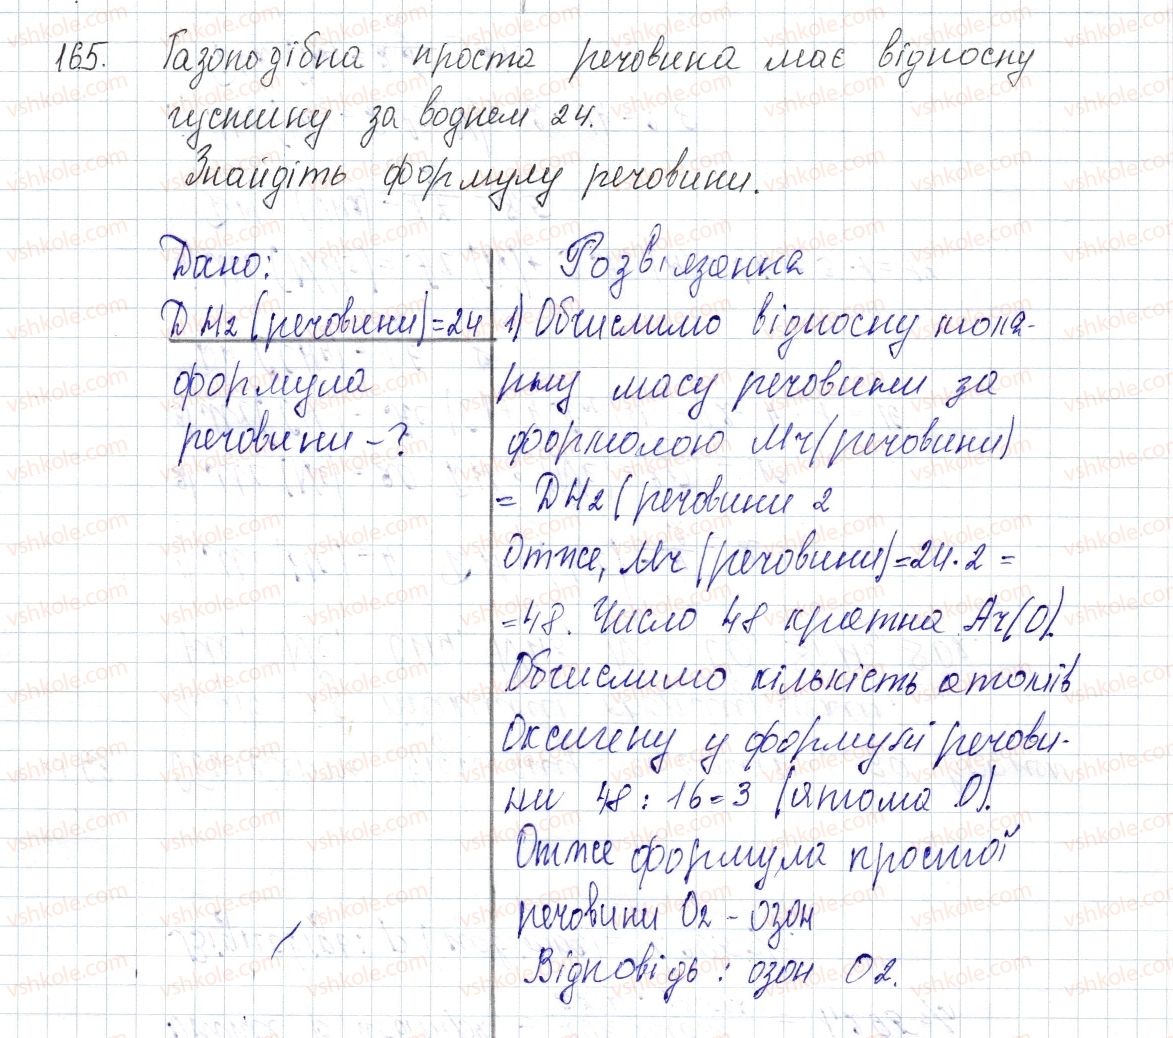 165. Газоподібна проста речовина має відносну
густину за воднем 24.
Знайдіть формулу речовини.
Дано:
DH2 (речовини)=24
формула
речовини - ?
Розвіязанна
1) Обчислимо відносну моля-
рну масу речовини за
формолою Mr(речовини)
= DH2 (речовини 2
Отже, Mr (речовини)=24·2=
=48. Число 48 кратна Ar(O).
Обчислимо кількість атомів
Оксигену у формулі речови-
ни 48 : 16=3 (атома O).
Отже формула простої
речовини O2 - озон
Відповідь: озон O2.